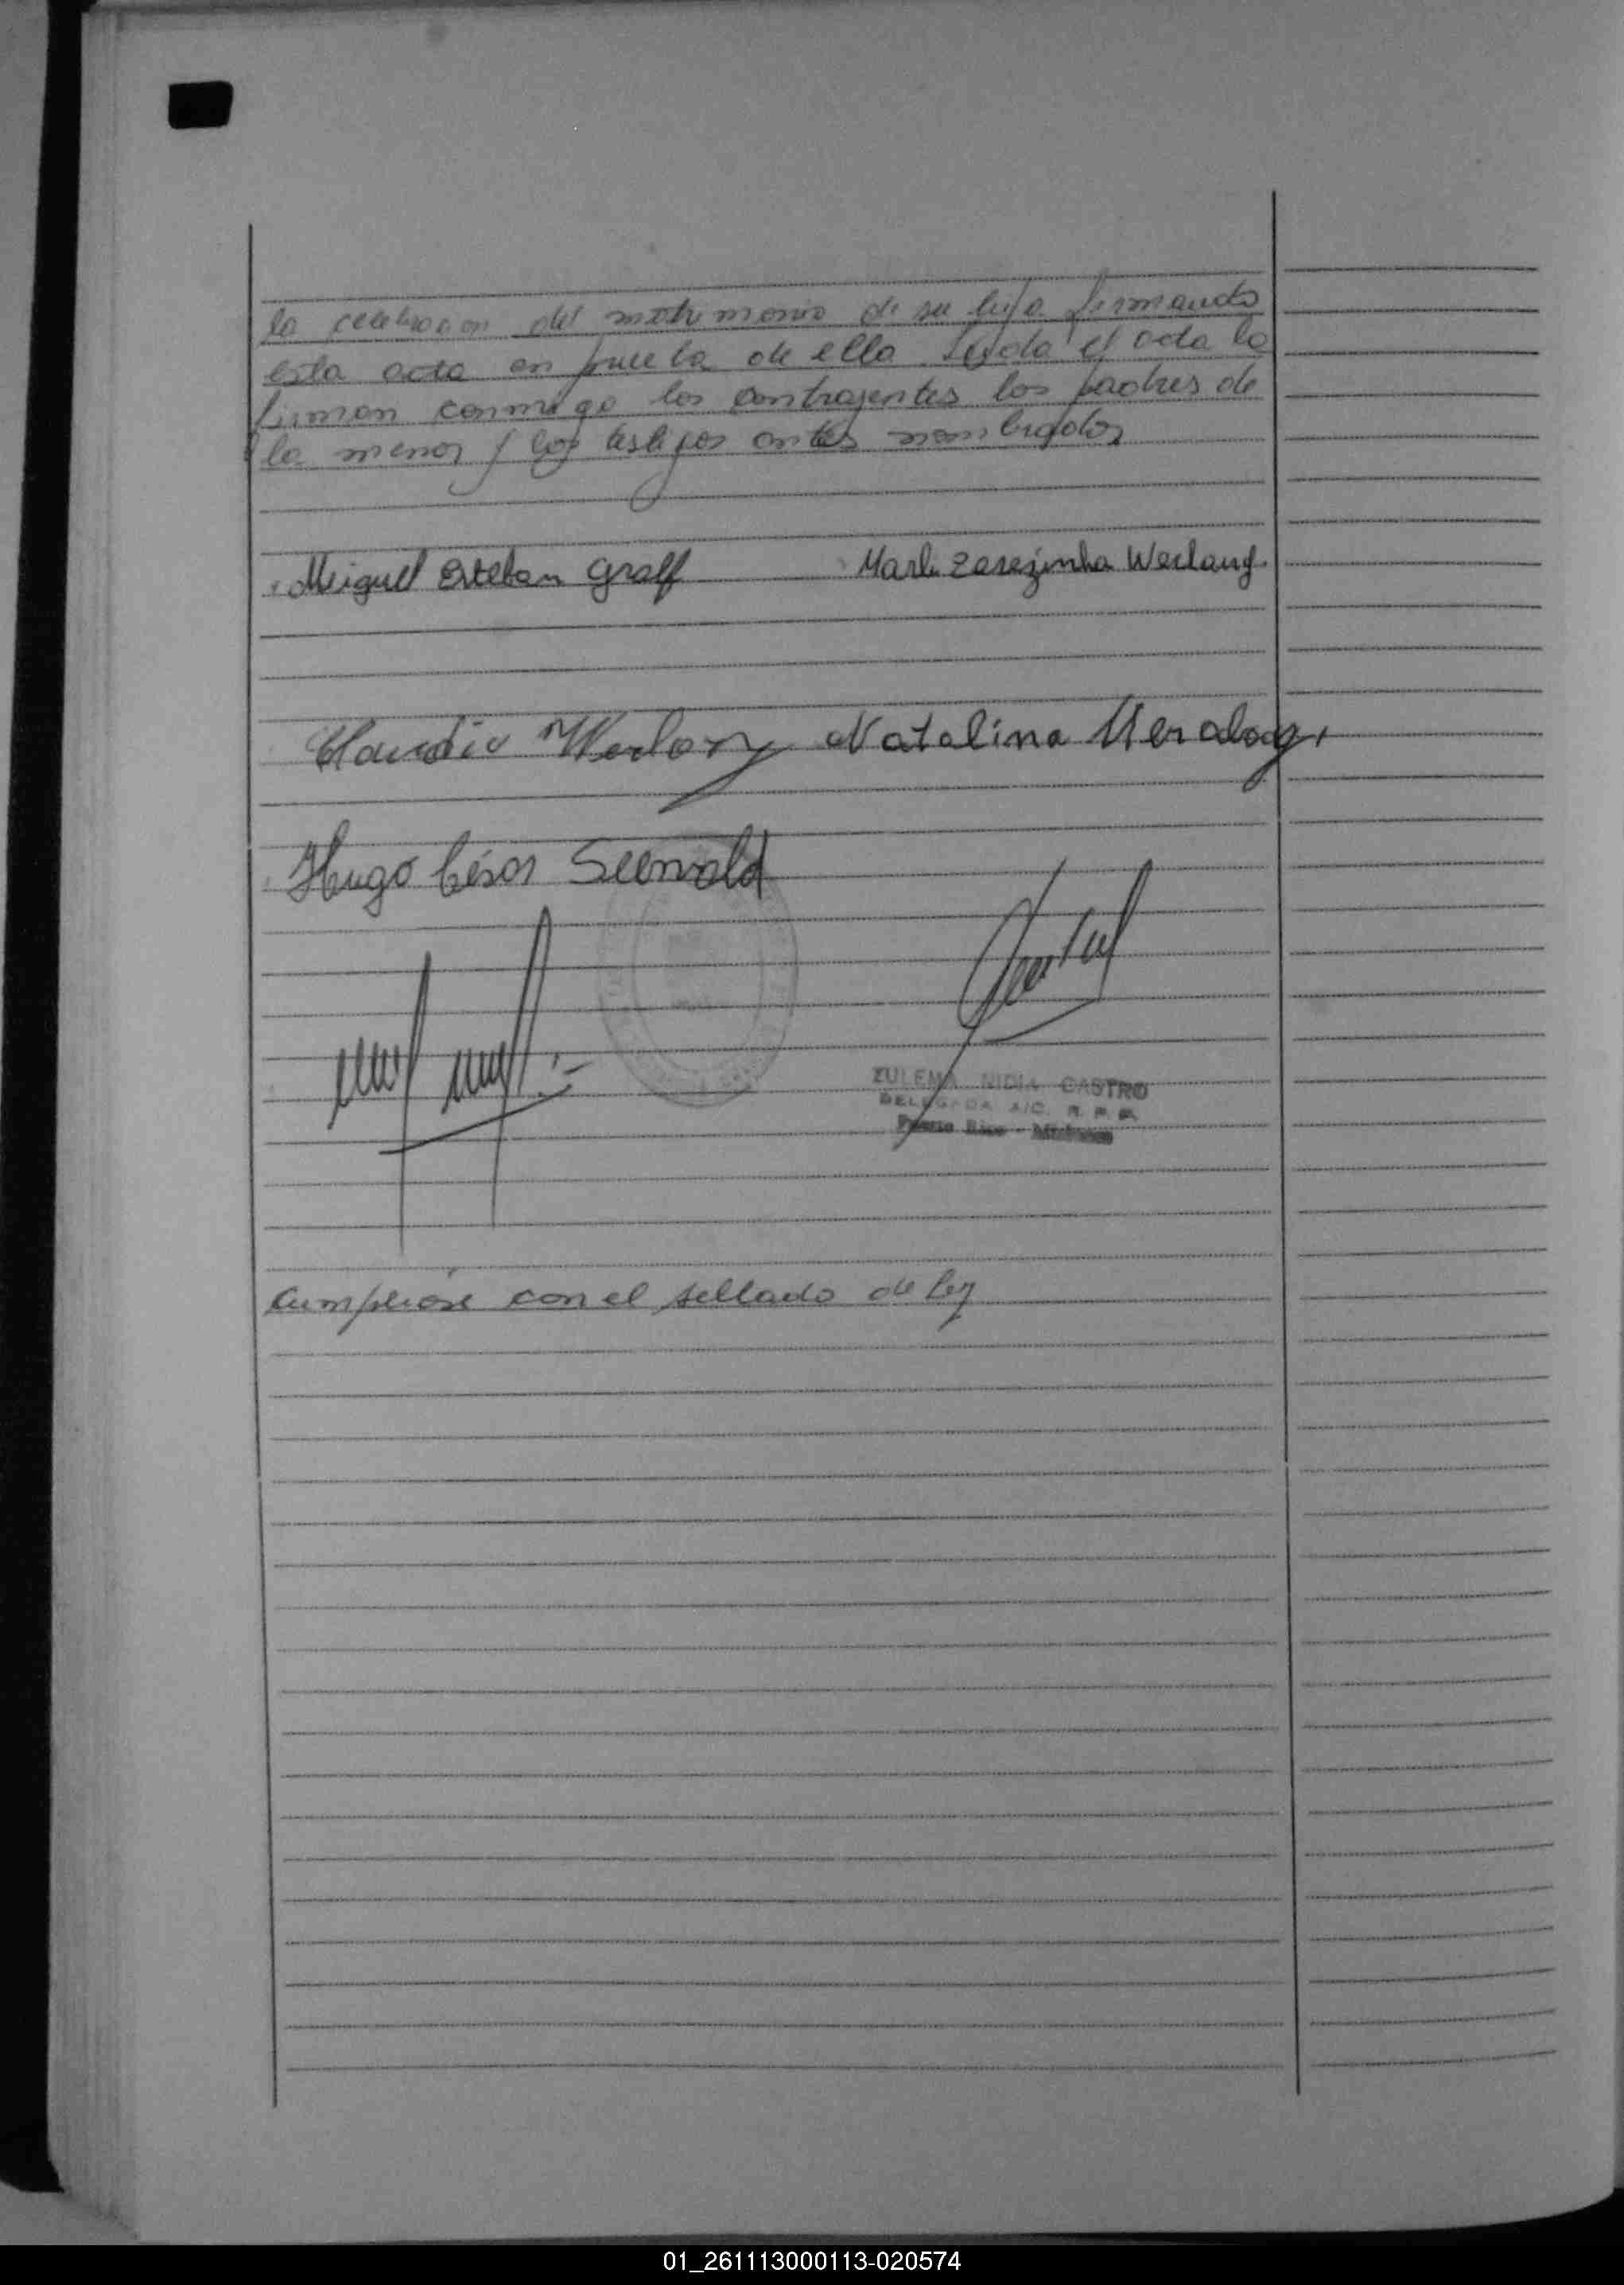 la celebracion del matrimonio de su hija firmando
esta acta en prueba de ella. Leyda el acta la
firman conmigo los contrayentes los padres de
la menor y los testigos antes nombrados
Miguel Esteban Graff Marli Zerezinha Werlang
Claudio Werlang Natalina Meralog
Hugo César Seewald
ZULEMA NIDIA CASTRO
DELEGADA A/C. R. P. P.
Puerto Rico - Misiones
Cumpliose con el sellado de ley
01_261113000113-020574